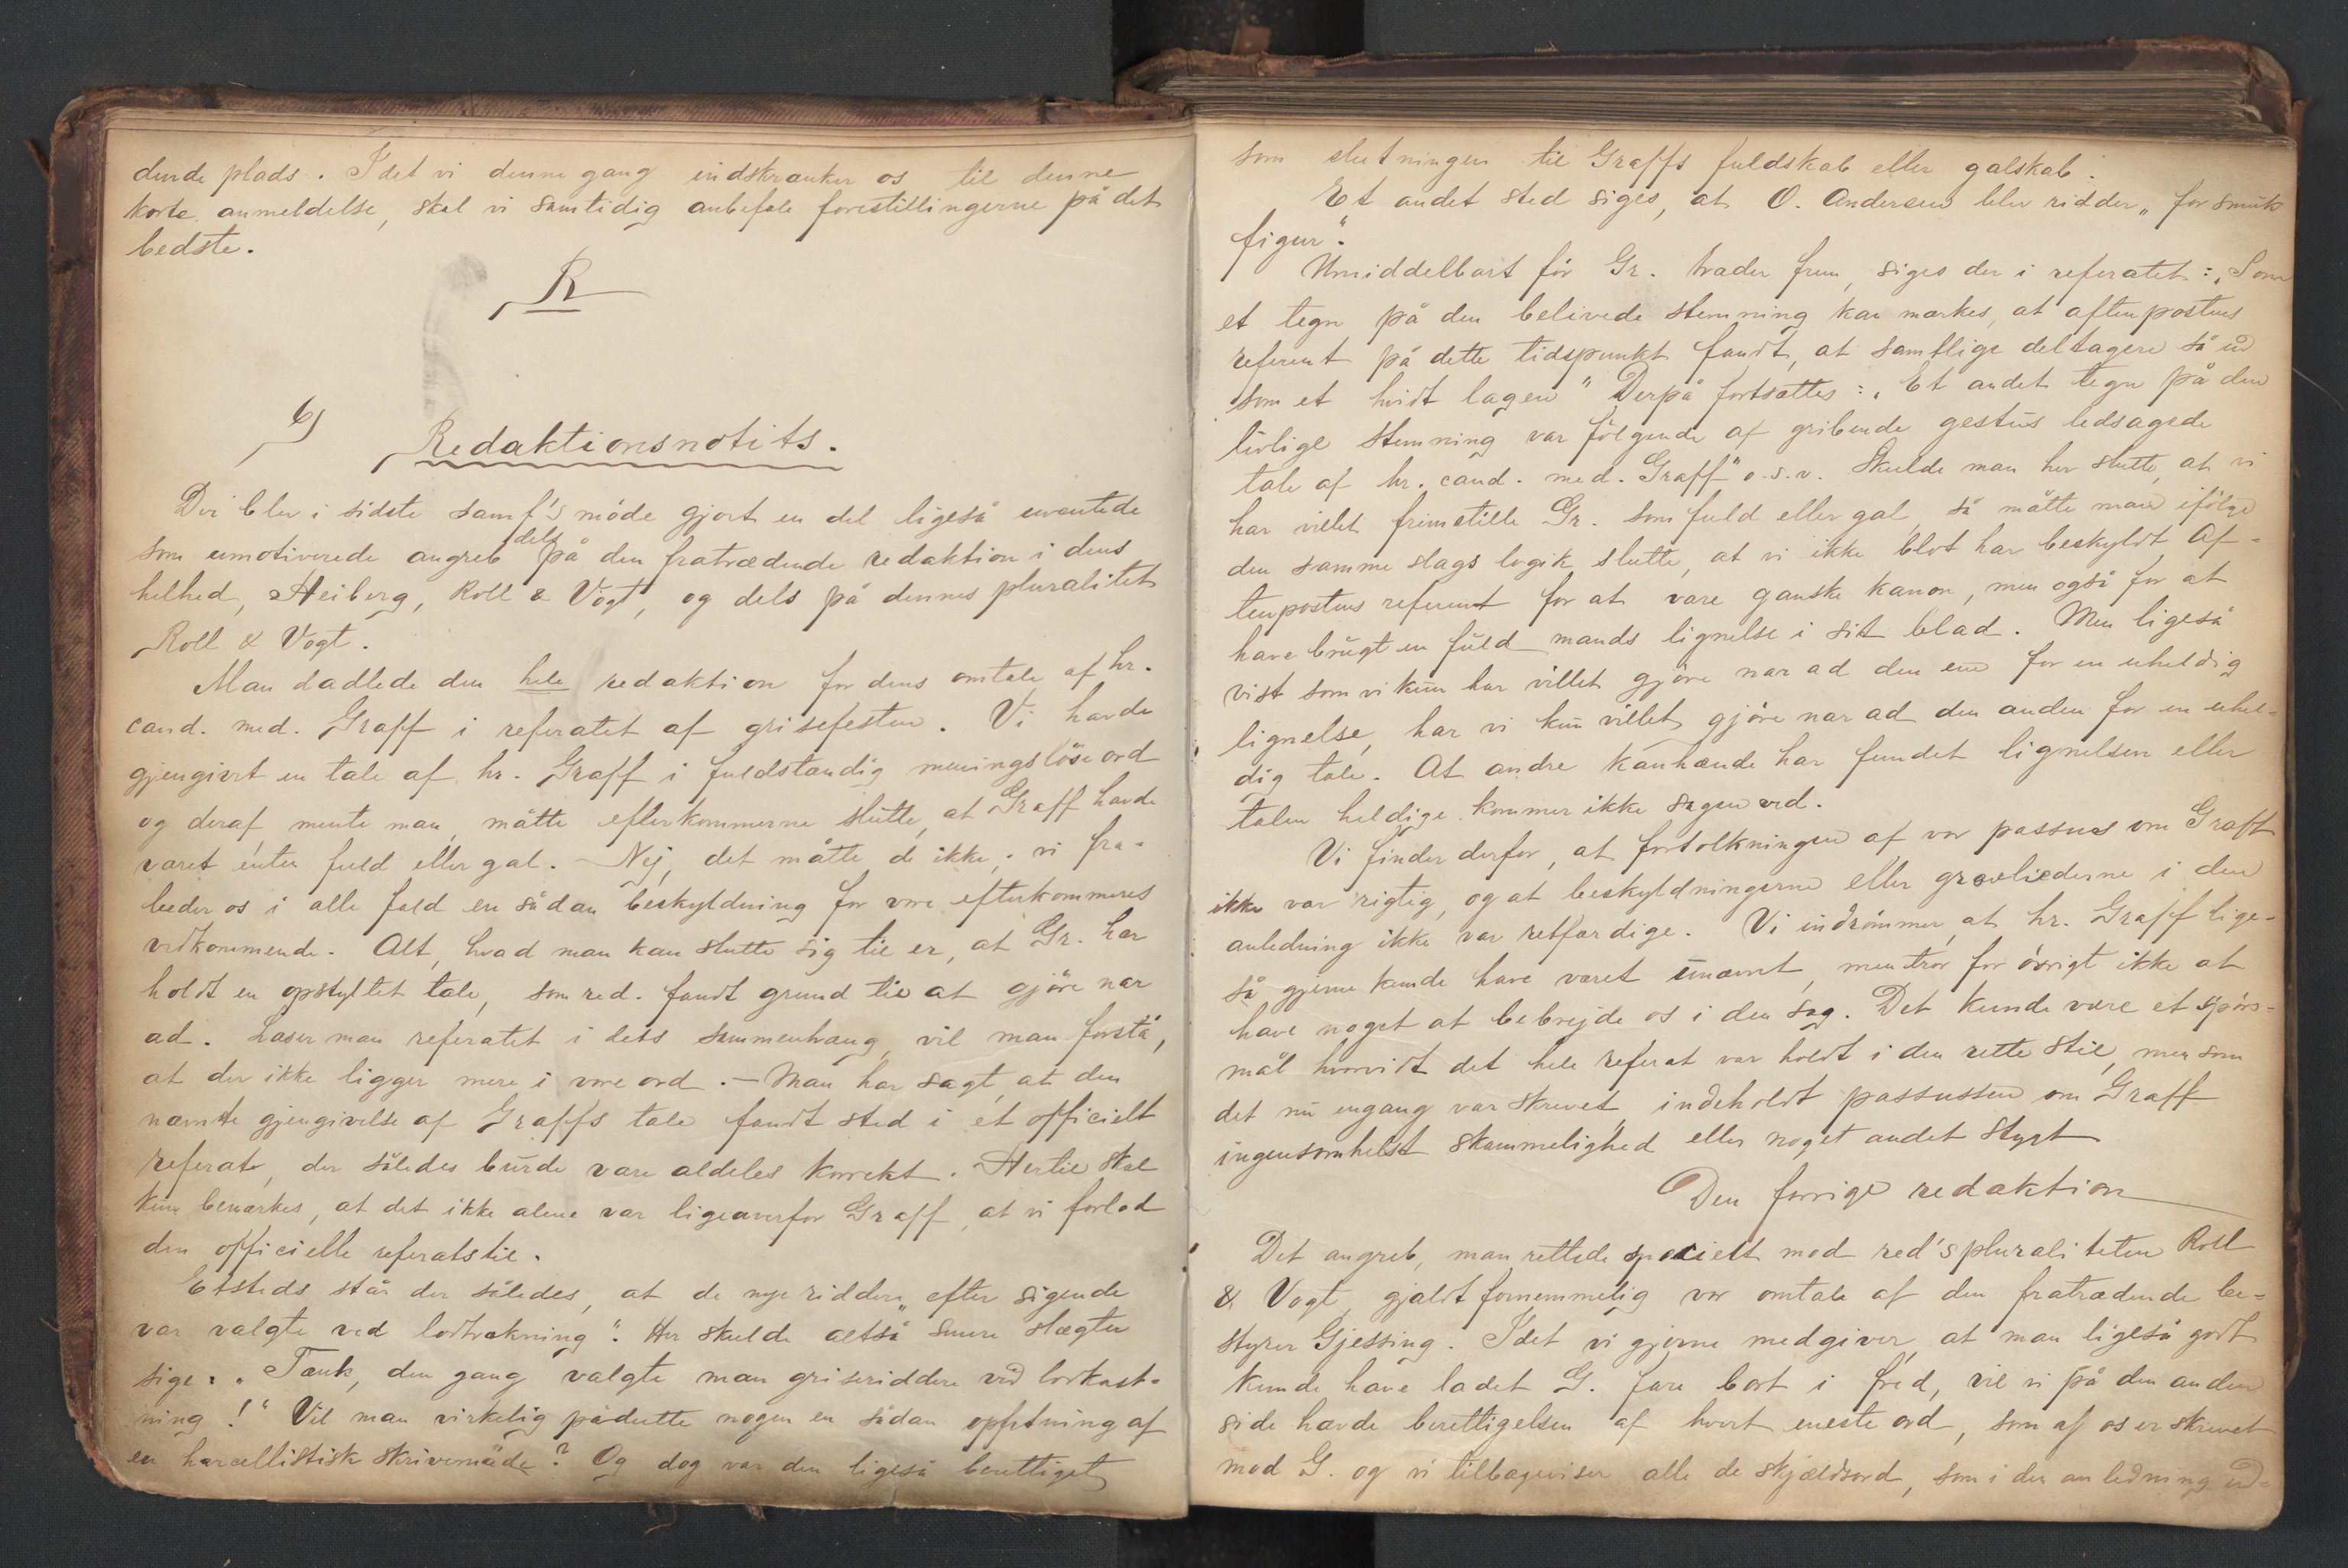 dende plads. Idet vi denne gang indskrænker os til denne
korte anmeldelse, skal vi samtidig anbefale forestillingerne på det
bedste.
R
6)
Redaktionsnotits.
Der blev i sidste samf's møde gjort en del ligeså uventede
som umotiverede angreb dels på den fratrædende redaktion i dens
helhed, Heiberg, Roll & Vogt, og dels på dennes pluralitet
Roll & Vogt.
Man dadlede den hele redaktion for dens omtale af hr.
cand. med. Graff i referatet af grisefesten. Vi havde
gjengivet en tale af hr. Graff i fuldstændig meningsløse ord
og deraf mente man, måtte efterkommerne slutte, at Graff havde
været enten fuld eller gal. – Nej, det måtte de ikke; vi fra-
beder os i alle fald en sådan beskyldning for vore efterkommeres
vedkommende. Alt, hvad man kan slutte sig til er, at Gr. har
holdt en opstyltet tale, som red. fandt grund til at gjøre nar
ad. Læser man referatet i dets sammenhæng, vil man forstå,
at der ikke ligger mere i vore ord. – Man har sagt, at den
nævnte gjengivelse af Graffs tale fandt sted i et officielt
referat, der således burde være aldeles korrekt. Hertil skal
kun bemærkes, at det ikke alene var ligeoverfor Graff, at vi forlod
den officielle referatstil.
Etsteds står der således, at de nye riddere „efter sigende
var valgte ved lodtrækning". Her skulde altså senere slægter
sige: „Tænk, den gang valgte man griseriddere ved lodkast-
ning!" Vil man virkelig pådutte nogen en sådan opfatning af
en harcellistisk skrivemåde? Og dog var den ligeså berettiget
som slutningen til Graffs fuldskab eller galskab.
Et andet sted siges, at O. Andersen blev ridder „for smuk
figur".
Umiddelbart før Gr. træder frem, siges der i referatet: „Som
et tegn på den belivede stemning kan mærkes, at aftenpostens
referent på dette tidspunkt fandt, at samtlige deltagere så ud
som et hvidt lagen" Derpå fortsættes: „Et andet tegn på den
livlige stemning var følgende af gribende gestus ledsagede
tale af hr. cand. med. Graff" o.s.v. Skulde man her slutte, at vi
har villet fremstille Gr. som fuld eller gal, så måtte man ifølge
den samme slags logik slutte, at vi ikke blot har beskyldt Af-
tenpostens referent for at være ganske kanon, men også for at
have brugt en fuld mands lignelse i sit blad. Men ligeså
vist som vi kun har villet gjøre nar ad den ene for en uheldig
lignelse, har vi kun villet gjøre nar ad den anden for en uhel-
dig tale. At andre kanhænde har fundet lignelsen eller
talen heldige kommer ikke sagen ved.
Vi finder derfor, at fortolkningen af vor passus om Graff
ikke var rigtig, og at beskyldningerne eller grovhederne i den
anledning ikke var retfærdige. Vi indrømmer, at hr. Graff lige-
så gjerne kunde have været unævnt, men tror for øvrigt ikke at
have noget at bebrejde os i den sag. Det kunde være et spørs-
mål hvorvidt det hele referat var holdt i den rette stil, men som
det nu engang var skrevet, indeholdt passussen om Graff
ingensomhelst skammelighed eller noget andet stygt
Den forrige redaktion
Det angreb, man rettede specielt mod red's pluraliteten Roll
& Vogt, gjaldt fornemmelig vor omtale af den fratrædende be-
styrer Gjessing. Idet vi gjerne medgiver, at man ligeså godt
kunde have ladet G. fare bort i fred, vil vi på den anden
side hævde berettigelsen af hvert eneste ord, som af os er skrevet
mod G. og vi tilbageviser alle de skjældsord, som i den anledning ud-